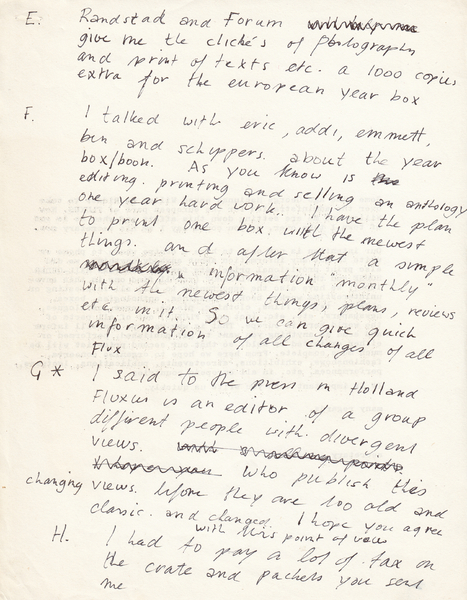 E. Randstad and Forum
give me the clichés of photography
and print of texts etc. a 1000 copies
extra for the european year box
F. I talked with eric, addi, emmett,
ben and schippers. about the year
box/book. As you know is
editing. printing and selling an anthology
one year hard work. I have the plan
to print one box with the newest
things. and after that a simple
information "monthly"
with the newest things, plans, reviews
etc. in it. So we can give quick
information of all changes of all
Flux
G * I said to the press in Holland
Fluxus is an editor of a group
different people with divergent
views.
who publish this
changing views. before they are too old and
classic. and changed. I hope you agree
with this point of view
H. I had to pay a lot of tax on
the crate and packets you sent
me